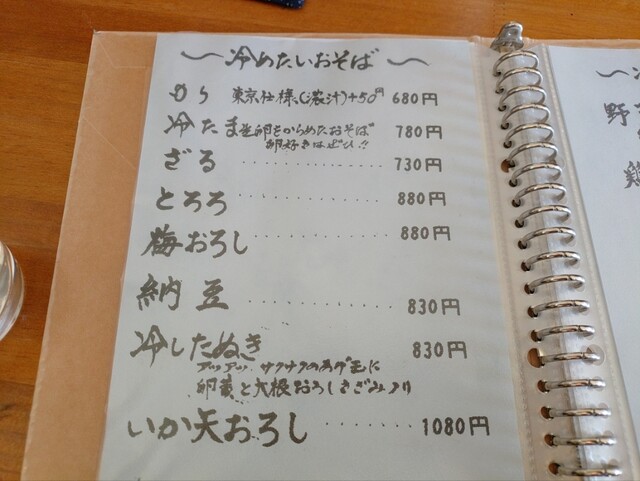 〜冷めたいおそば〜
もり 東京仕様(濃汁)+50円 680円
冷たま 生卵をからめたおそば 780円
卵好きはぜひ!!
ざる ・・・・・・・・・・ 730円
とろろ ・・・・・・・・・・ 880円
梅おろし ・・・・・・・・・・ 880円
納豆 ・・・・・・・・・・ 830円
冷したぬき 830円
アツアツ サクサクのあげ玉に
卵黄と大根おろしきざみのり
いか天おろし ・・・・・・・ 1080円
野
鶏